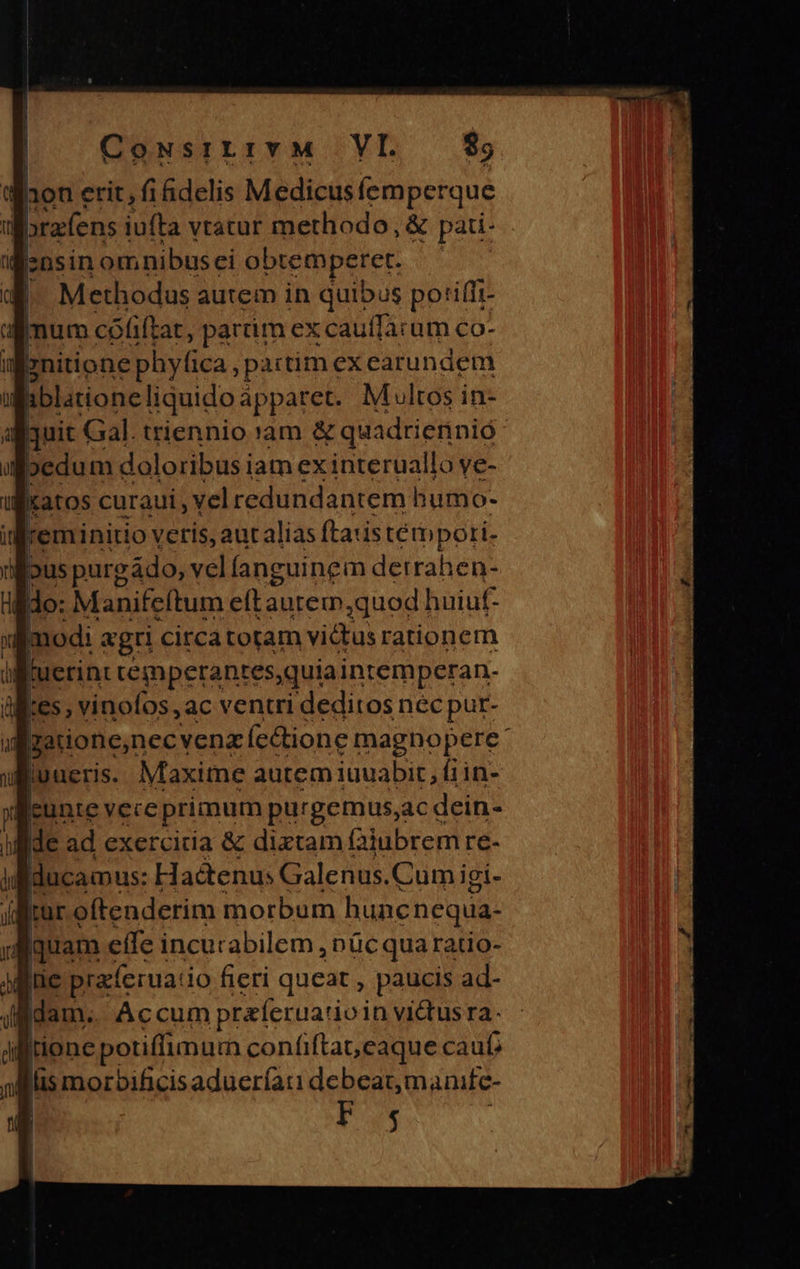 CONSILIVM VI. 89
non erit, si fidelis Medicus semperque
præsens iusta vtatur methodo, & pati-
ens in omnibus ei obtemperet.
Methodus autem in quibus potissi-
mum cōsistat, partim ex caussarum co-
gnitione physica, partim ex earundem
ablatione liquido apparet. Multos in-
quit Gal. triennio iam & quadriennio
pedum doloribus iam ex interuallo ve-
xatos curaui, vel redundantem humo-
rem initio veris, aut alias statis tēmpori-
bus purgādo, vel sanguinem detrahen-
do: Manifestum est autem, quod huius-
modi ægri circa totam victus rationem
fuerint temperantes, quia intemperan-
tes, vinosos, ac ventri deditos nec pur-
gatione, nec venæ sectione magnopere
iuueris. Maxime autem iuuabit, si in-
eunte vere primum purgemus, ac dein-
de ad exercitia & diætam salubrem re-
ducamus: Hactenus Galenus. Cum igi-
tur ostenderim morbum hunc nequa-
quam esse incurabilem, nūc qua ratio-
ne præseruatio fieri queat, paucis ad-
dam. Ac cum præseruatio in victus ra-
tione potissimum consistat, eaque caus-
sis morbificis aduersari debeat, manife-
F 5